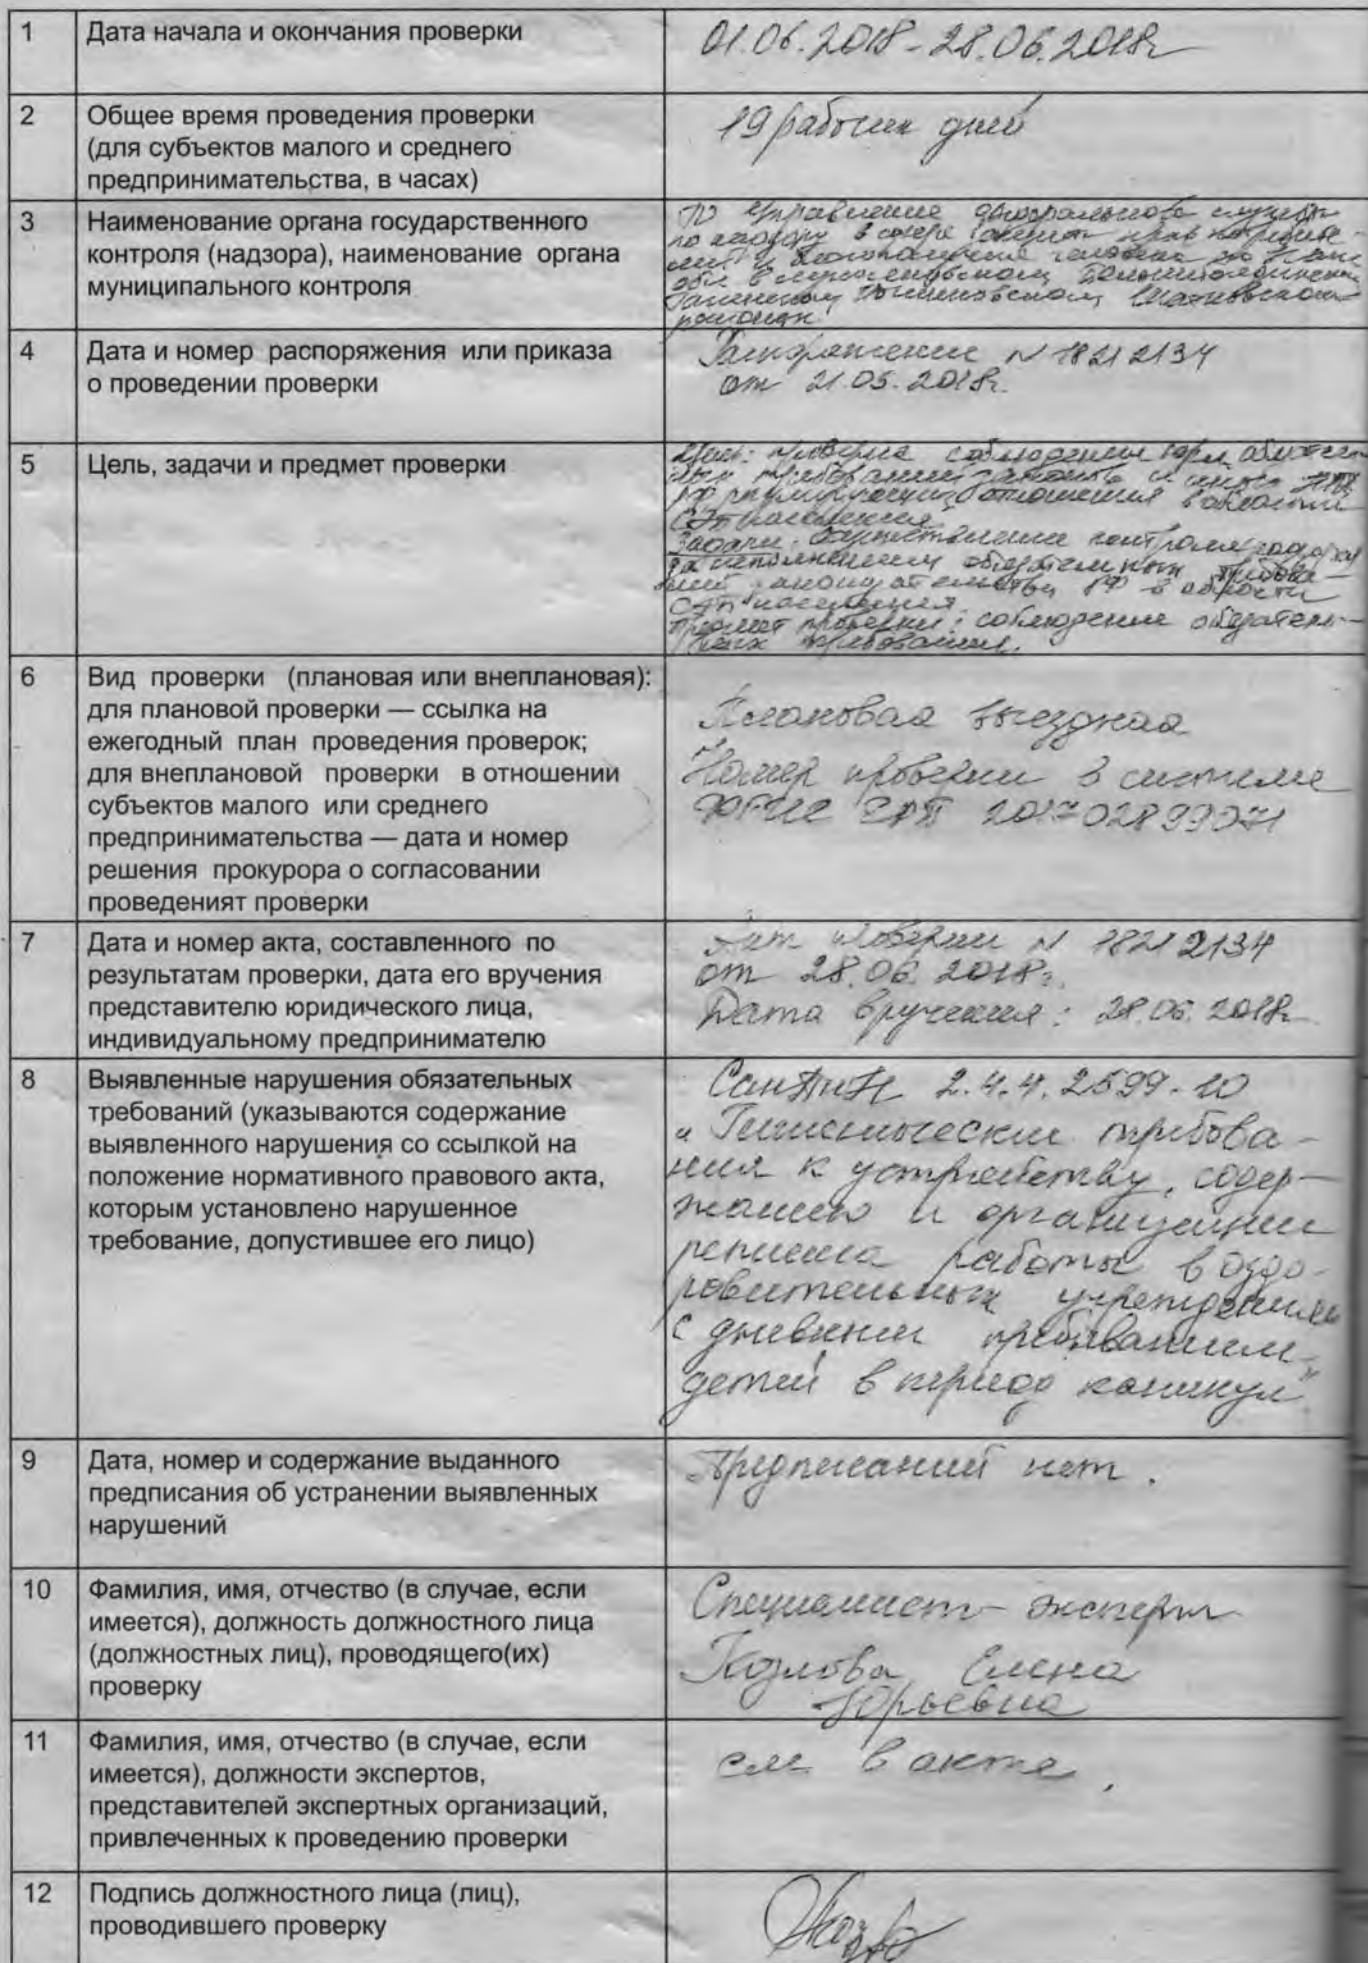 1
Дата начала и окончания проверки
01.06.2018-28.06.2018г
2
Общее время проведения проверки
(для субъектов малого и среднего
предпринимательства, в часах)
19 рабочих дней
3
Наименование органа государственного
контроля (надзора), наименование органа
муниципального контроля
ТО Управление федеральной службы
по надзору в сфере защиты прав потребите-
лей и благополучия человека по
в
районах
4
Дата и номер распоряжения или приказа
о проведении проверки
Распоряжение N 18212134
от 21.05.2018г.
5
Цель, задачи и предмет проверки
Цель: проверка соблюдения
требований законов и иных НПА
РФ регулирующих отношения в области
СЭП населения.
Задачи: осуществление контроля
за исполнением обязательных требова-
ний законодательства РФ в области
СЭП населения.
Предмет проверки: соблюдение обязатель-
ных требований.
6
Вид проверки (плановая или внеплановая):
для плановой проверки — ссылка на
ежегодный план проведения проверок;
для внеплановой проверки в отношении
субъектов малого или среднего
предпринимательства — дата и номер
решения прокурора о согласовании
проведеният проверки
Плановая выездная
Номер проверки в системе
ФГИС ЕРП 201702899071
7
Дата и номер акта, составленного по
результатам проверки, дата его вручения
представителю юридического лица,
индивидуальному предпринимателю
Акт проверки N 18212134
от 28.06.2018г.
Дата вручения: 28.06.2018г
8
Выявленные нарушения обязательных
требований (указываются содержание
выявленного нарушения со ссылкой на
положение нормативного правового акта,
которым установлено нарушенное
требование, допустившее его лицо)
СанПиН 2.4.4.2599-10
"Гигиенические требова-
ния к устройству, содер-
жанию и организации
режима работы в оздо-
ровительных учреждениях
с дневным пребыванием
детей в период каникул"
9
Дата, номер и содержание выданного
предписания об устранении выявленных
нарушений
Предписаний нет.
10
Фамилия, имя, отчество (в случае, если
имеется), должность должностного лица
(должностных лиц), проводящего(их)
проверку
Специалист-эксперт
Козлова Елена
Юрьевна
11
Фамилия, имя, отчество (в случае, если
имеется), должности экспертов,
представителей экспертных организаций,
привлеченных к проведению проверки
см. в акте.
12
Подпись должностного лица (лиц),
проводившего проверку